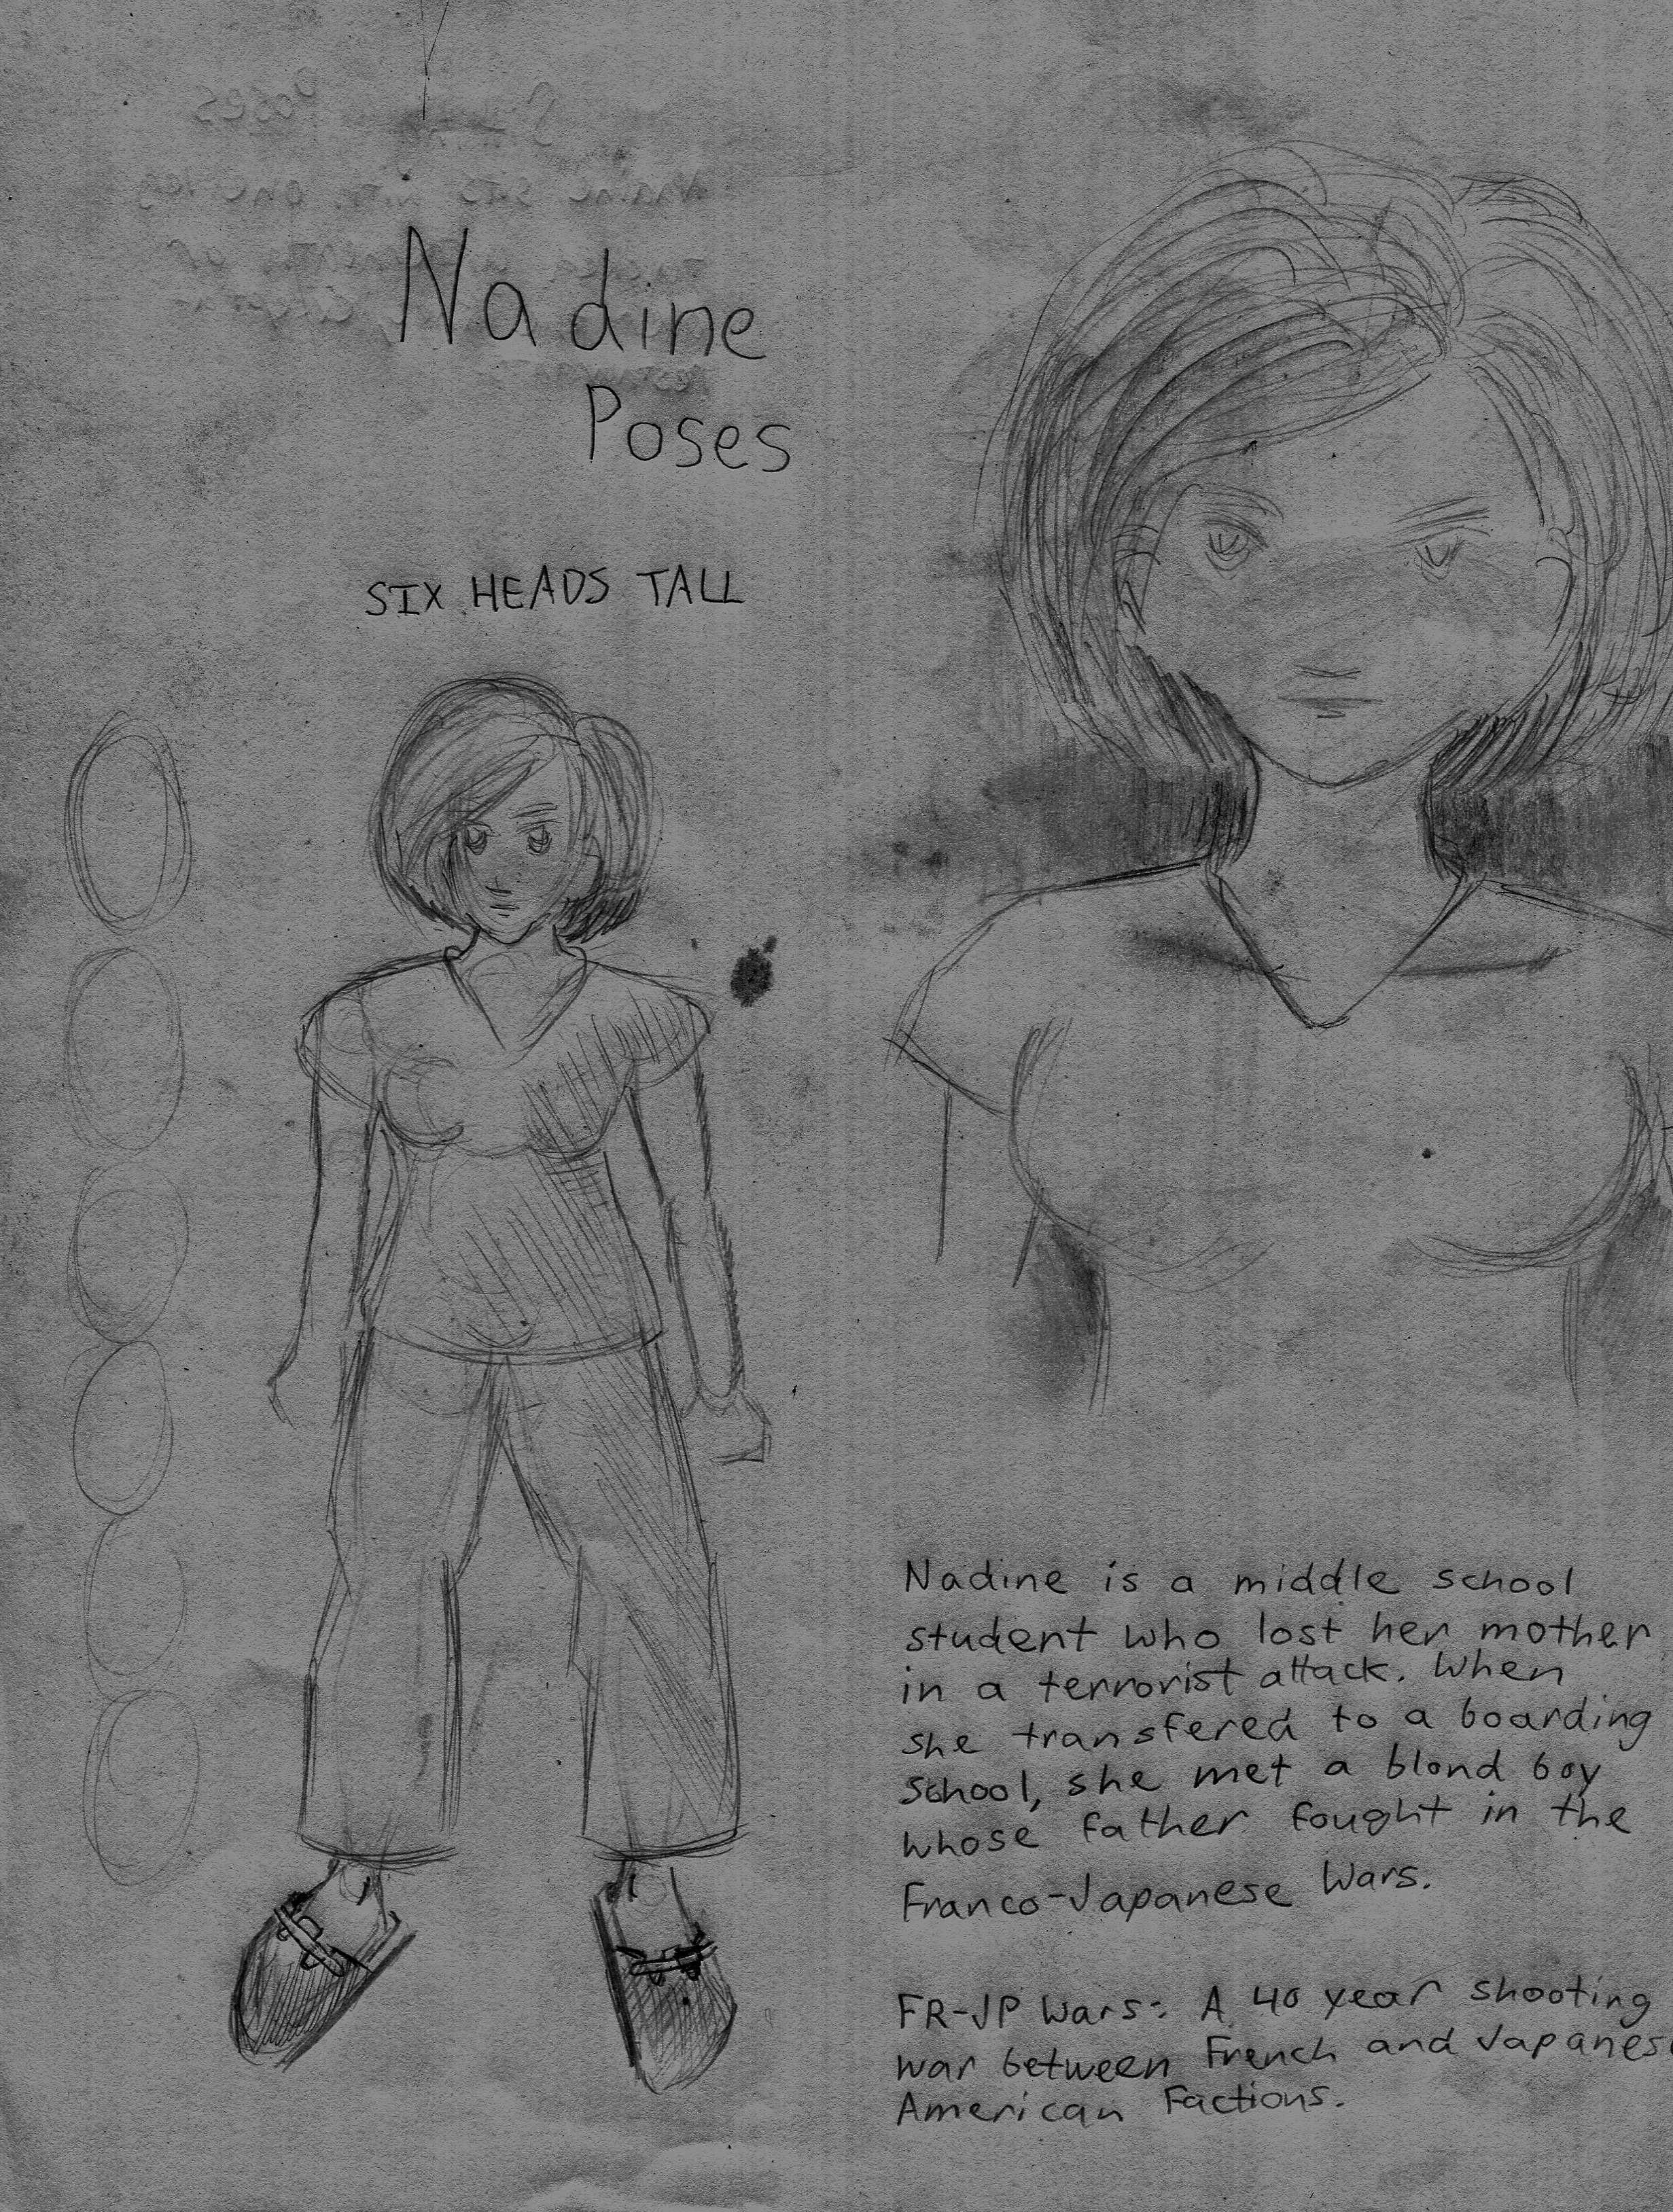 Nadine
Poses
SIX HEADS TALL
Nadine is a middle school
student who lost her mother
in a terrorist attack. When
she transfered to a boarding
School, she met a blond boy
whose father fought in the
Franco-Japanese Wars.
FR-JP Wars: A 40 year shooting
war between French and Japanese
American Factions.